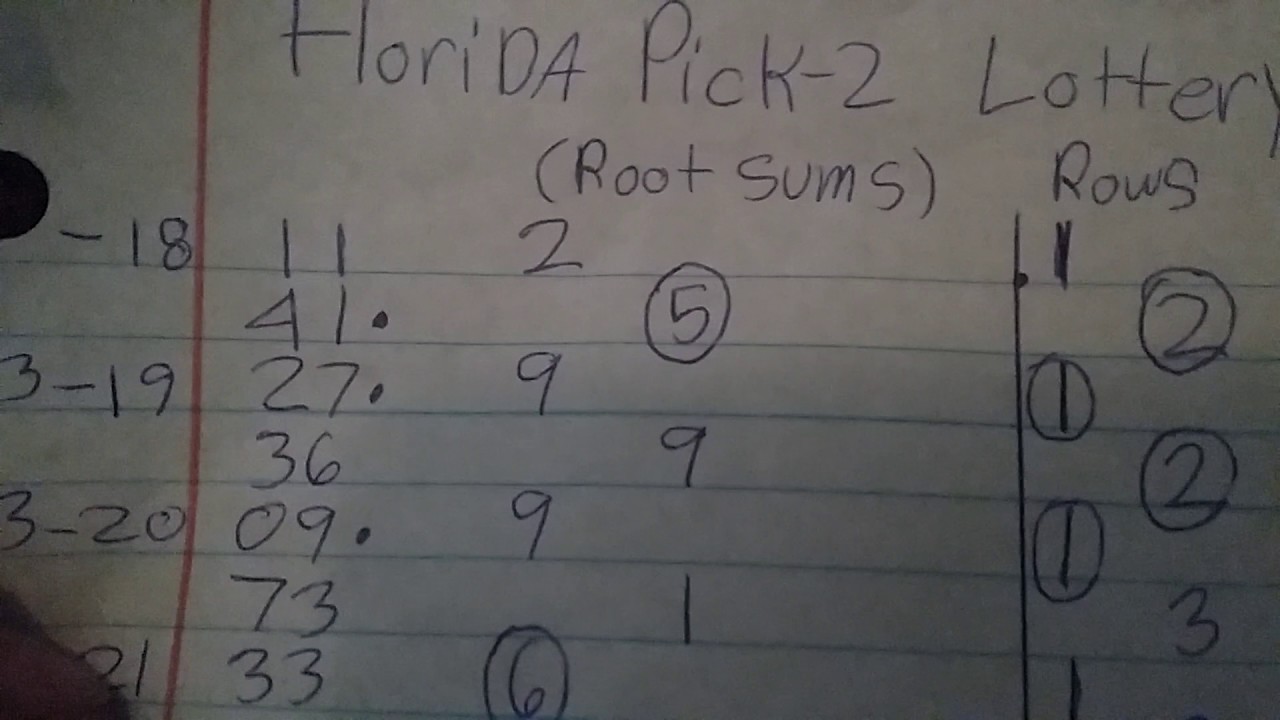 FloriDA Pick-2 Lottery
(Root Sums) Rows
-18 11 2 1
41. 5 2
3-19 27. 9 1
36 9 2
3-20 09. 9 1
73 1 3
21 33 6 1